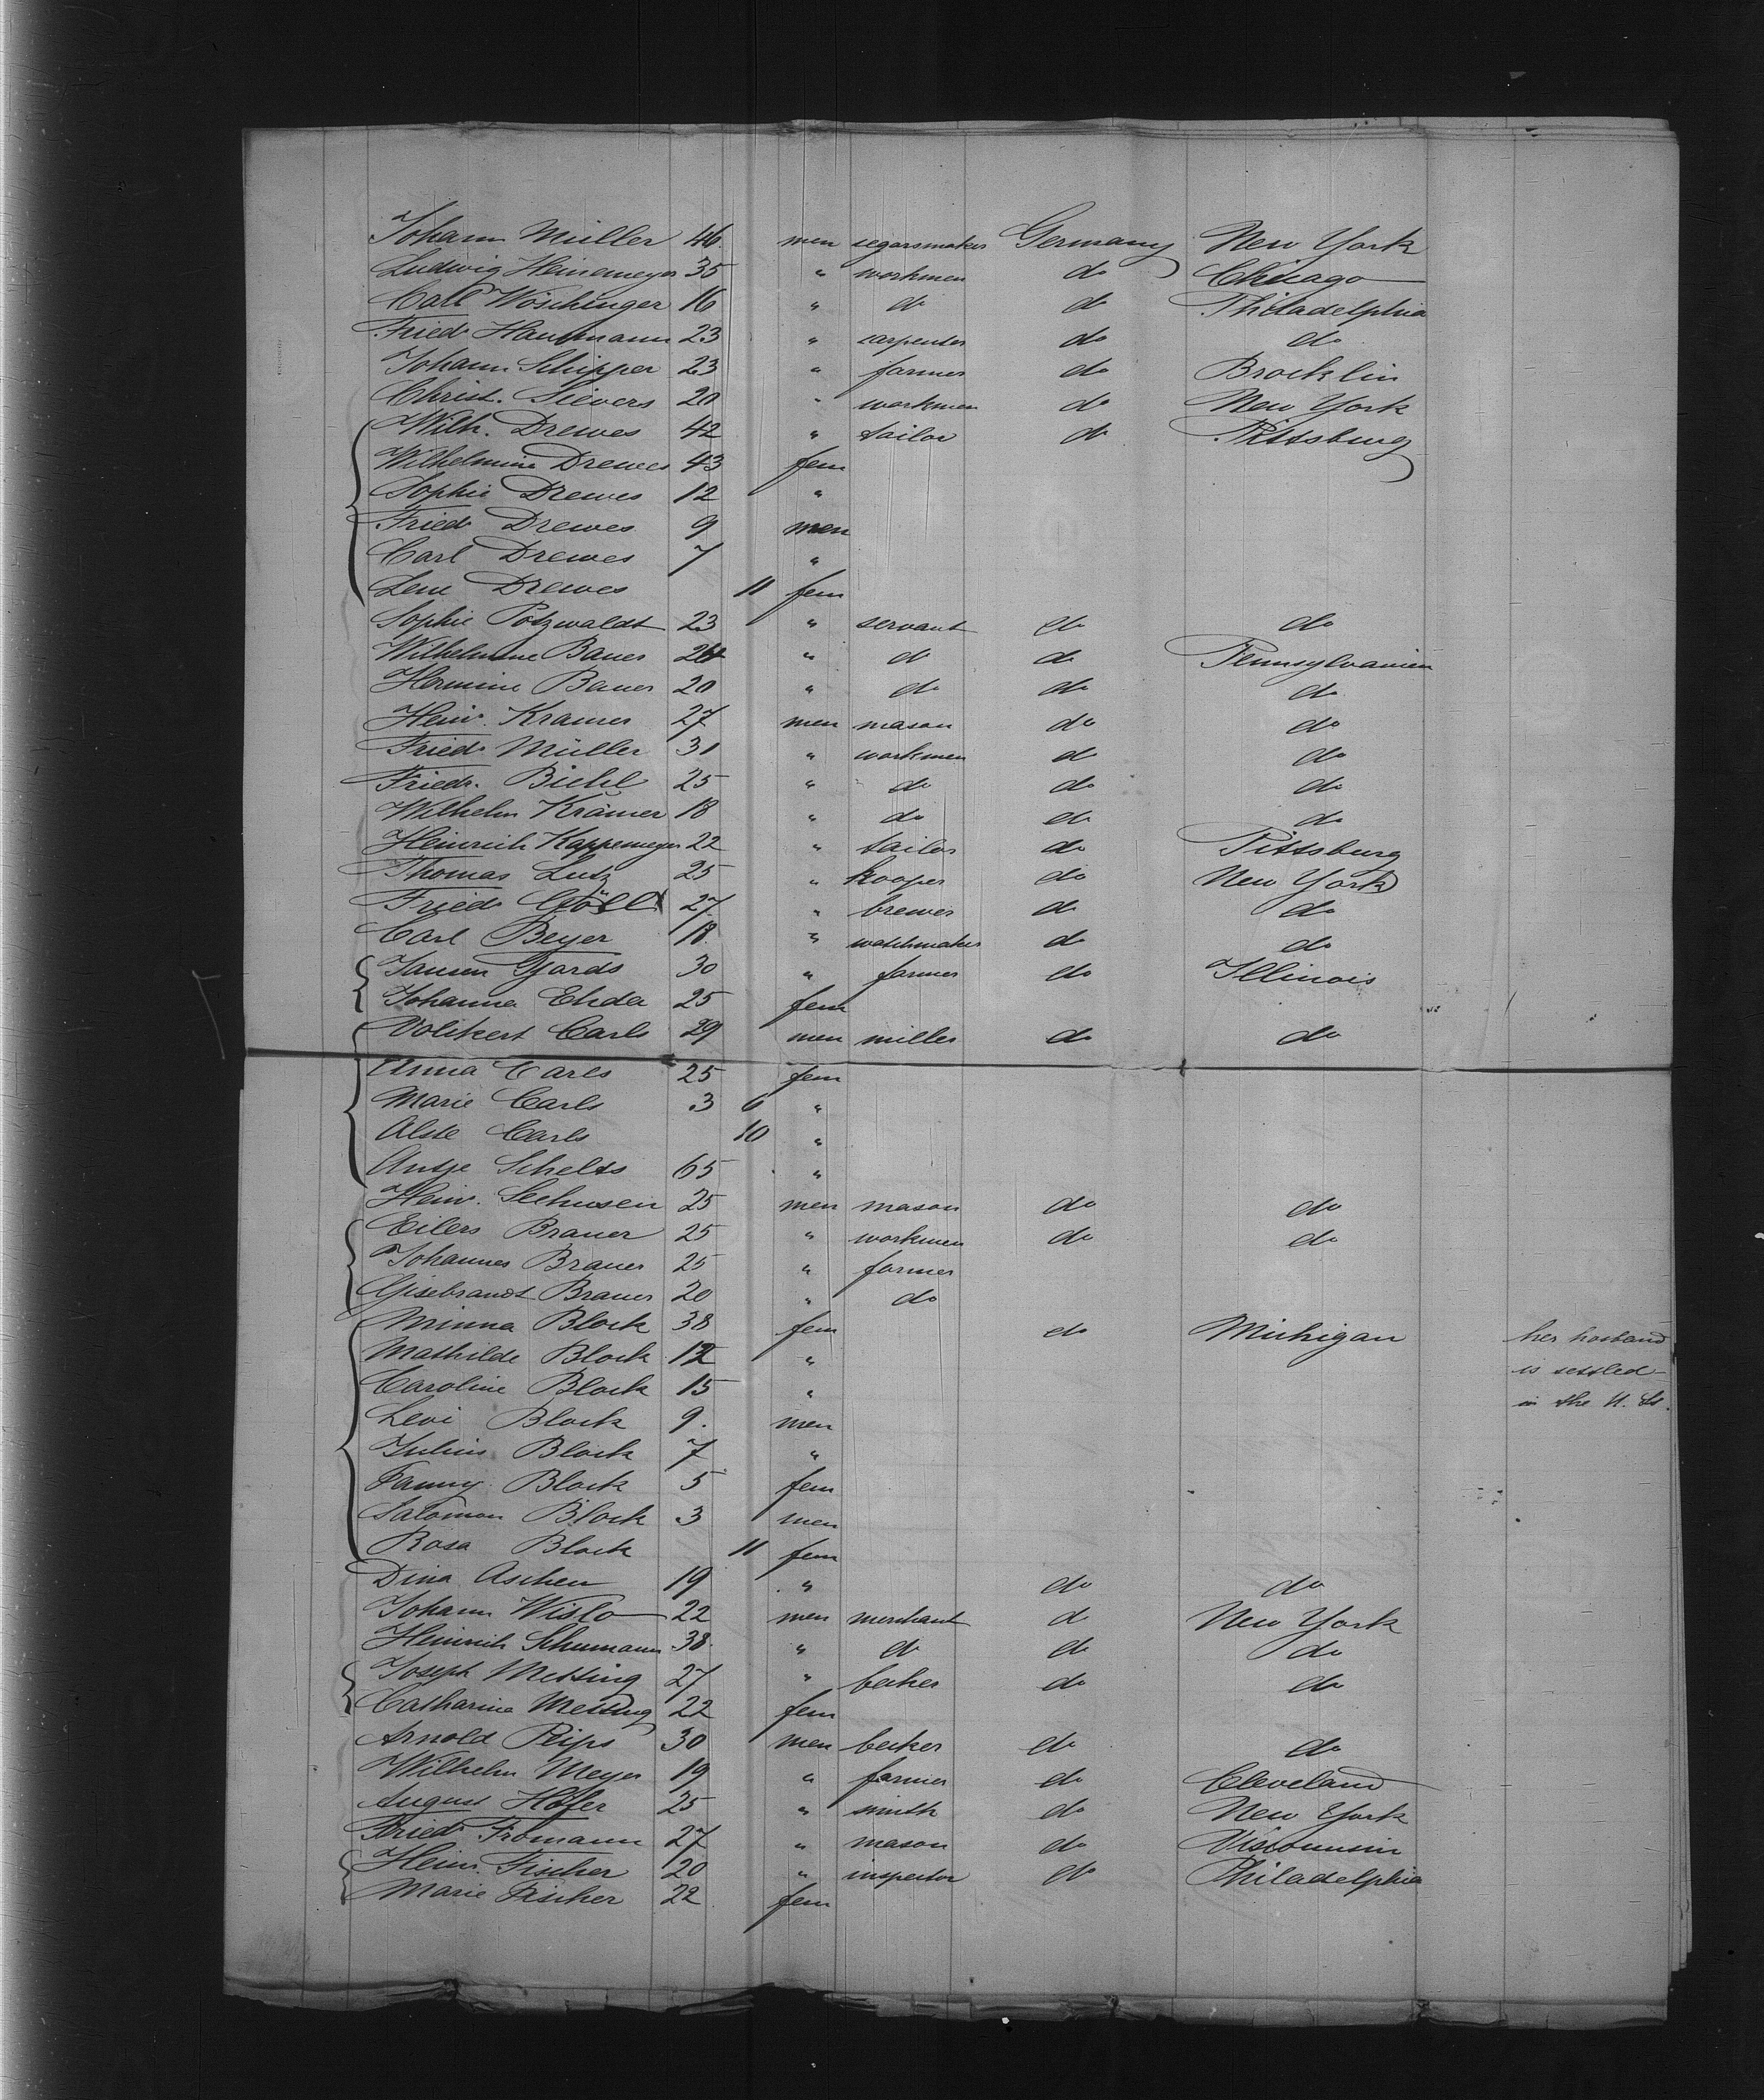 Johann Müller 46 men segarsmaker Germany New York
Ludwig Heinemeyer 35 " workmen do Chicago
Carl Wöschinger 16 " do do Philadelphia
Friedr Haussmann 23 " carpenter do do
Johann Schipper 23 " farmer do Brocklin
Christ. Sievers 20 " workmen do New York
Wilh. Drewes 42 " tailor do Pittsburg
Wilhelmine Drewes 43 fem
Sophie Drewes 12 "
Friedr Drewes 9 men
Carl Drewes 7 "
Lene Drewes 11 fem
Sophie Potzwaldt 23 " servant do do
Wilhelmine Bauer 24 " do do Pennsylvanien
Hermine Bauer 20 " do do do
Heinr. Kramer 27 men mason do do
Friedr Müller 31 " workmen do do
Friedr. Biehl 25 " do do do
Wilhelm Krämer 18 " do do do
Heinrich Kappemeyer 22 " tailor do Pittsburg
Thomas Lutz 25 " kooper do New York
Friedr Göll 27 " brewer do do
Carl Beyer 18 " watchmaker do do
Jansen Gjards 30 " farmer do Illinois
Johanna Ehda 25 fem
Volikert Carls 29 men miller do do
Anna Carls 25 fem
Marie Carls 3 6 "
Alste Carls 10 "
Antje Schelts 65 "
Heinr. Seehusen 25 men mason do do
Eilers Brauer 25 " workmen do do
Johannes Brauer 25 " farmer
Gisebrandt Brauer 20 " do
Minna Block 38 fem do Michigan her hosband
Mathilde Block 12 " is settled
Caroline Block 15 " in the U. St.
Levi Block 9. men
Julius Block 7 "
Fanny Block 5 fem
Salomon Block 3 men
Rosa Block 11 fem
Dina Aschen 19 " do do
Johann Wislo 22 men merchant do New York
Heinrich Schumann 38 " do do do
Joseph Metting 27 " becker do do
Catharine Metting 22 fem
Arnold Rips 30 men becker do do
Wilhelm Meyer 19 " farmer do Cleveland
August Höfer 25 " smith do New York
Friedr Fromann 27 " mason do Visconnsin
Heinr. Fischer 20 " inspector do Philadelphia
Marie Fischer 22 fem